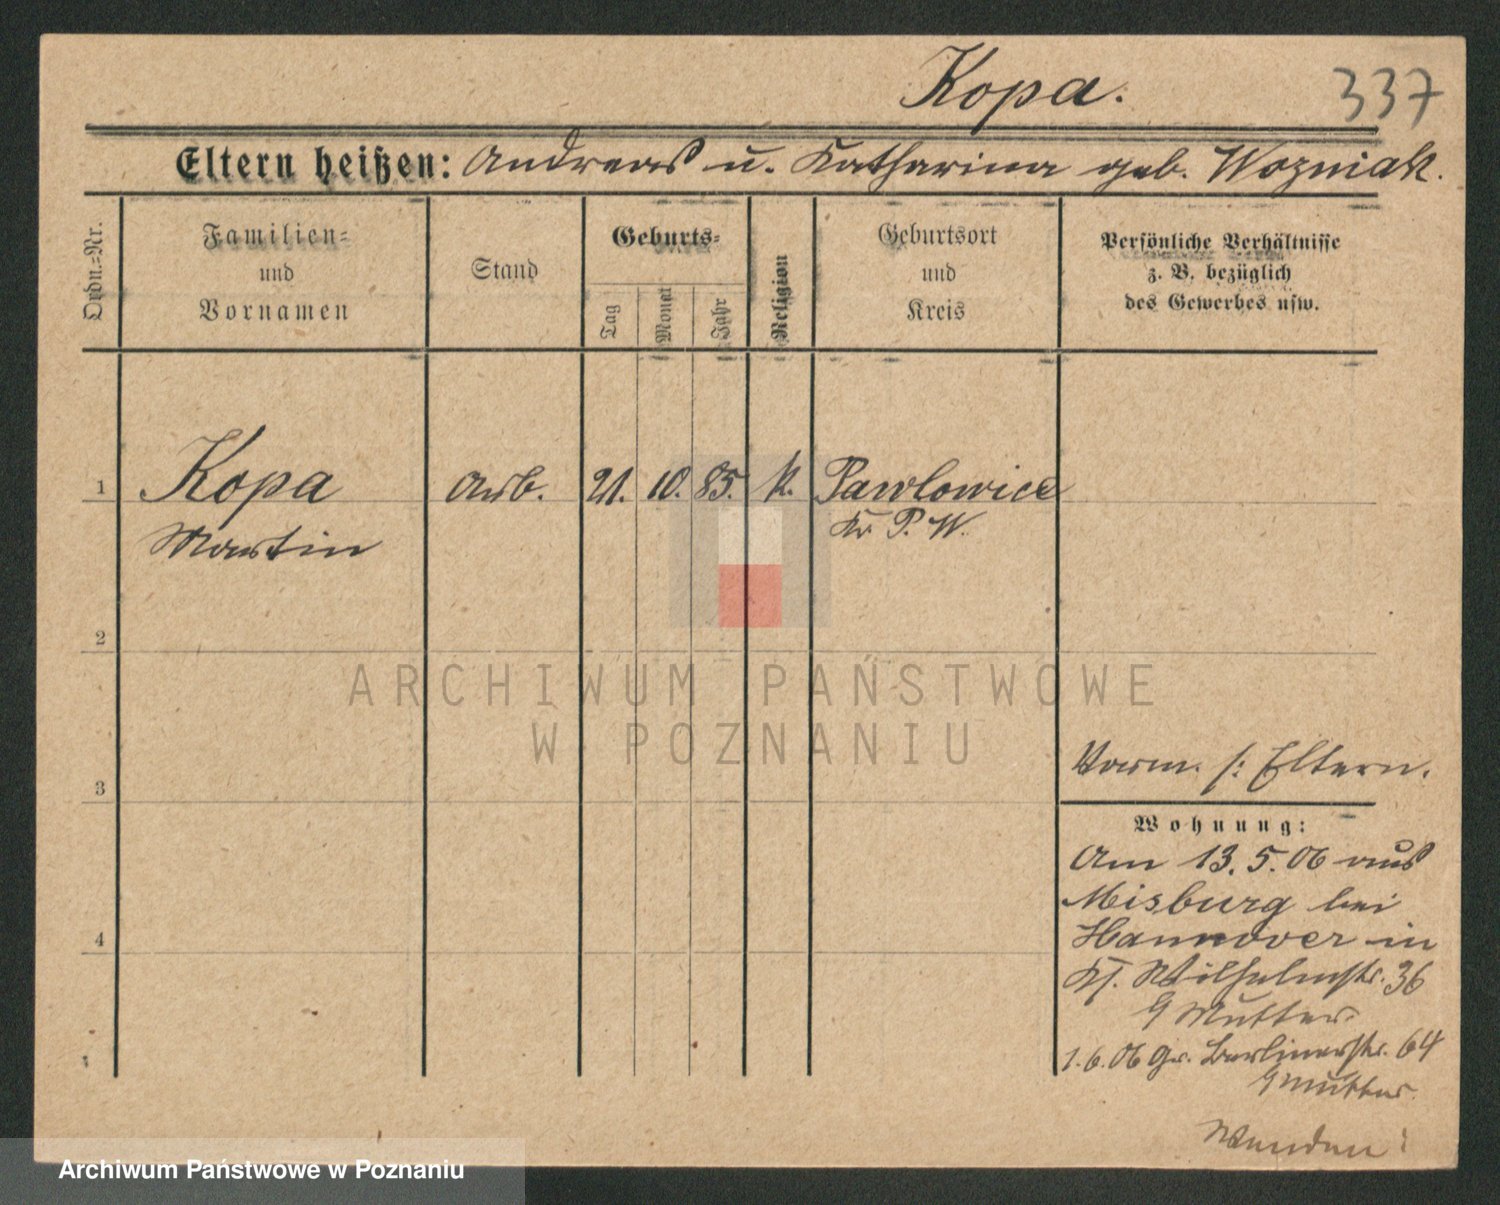 Kopa.
337
Eltern heißen: Andreas u. Katharina geb. Wozniak.
Ordn.-Nr.
Familien-
und
Vornamen
Stand
Geburts-
Tag
Monat
Jahr
Religion
Geburtsort
und
Kreis
Persönliche Verhältnisse
z. B. bezüglich
des Gewerbes usw.
1 Kopa Arb. 21. 10. 85. k. Pawlowice
Martin Kr P. W.
2
ARCHIWUM PAŃSTWOWE
W POZNANIU
3
Vorm. s: Eltern.
Wohnung:
Am 13. 5. 06 aus
Misburg bei
Hannover in
4
Wilhelmstr. 36
Mutter
1. 6. 06 Gr. Berlinerstr. 64
Mutter
Wenden!
Archiwum Państwowe w Poznaniu